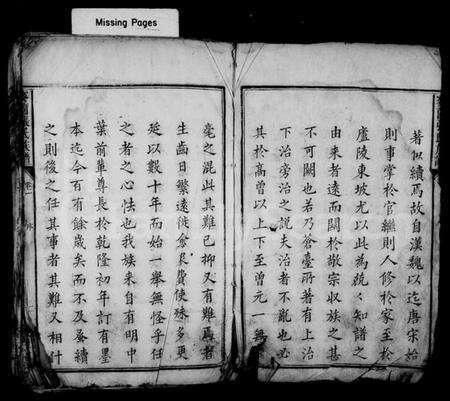 Missing Pages
著似續焉故自漢魏以迄唐宋始
則事掌於官繼則人修於家至於
廬陵東坡尤以此為競競知譜之
由来者遠而關於敬宗収族之甚
不可闕也若乃蒼臺所著有上治
下治旁治之説夫治者不亂也必
其於高曾以上下至曾元一無
毫之混此其難已抑又有難焉者
生齒日繁遠徙愈艮費使殊多更
延以數十年而始一舉無怪乎任
之者之心怯也我族来自有明中
葉前軰尊長於乾隆初年訂有墨
本迄今百有餘歲矣而不及蚤續
之則後之任其事者其難又相什